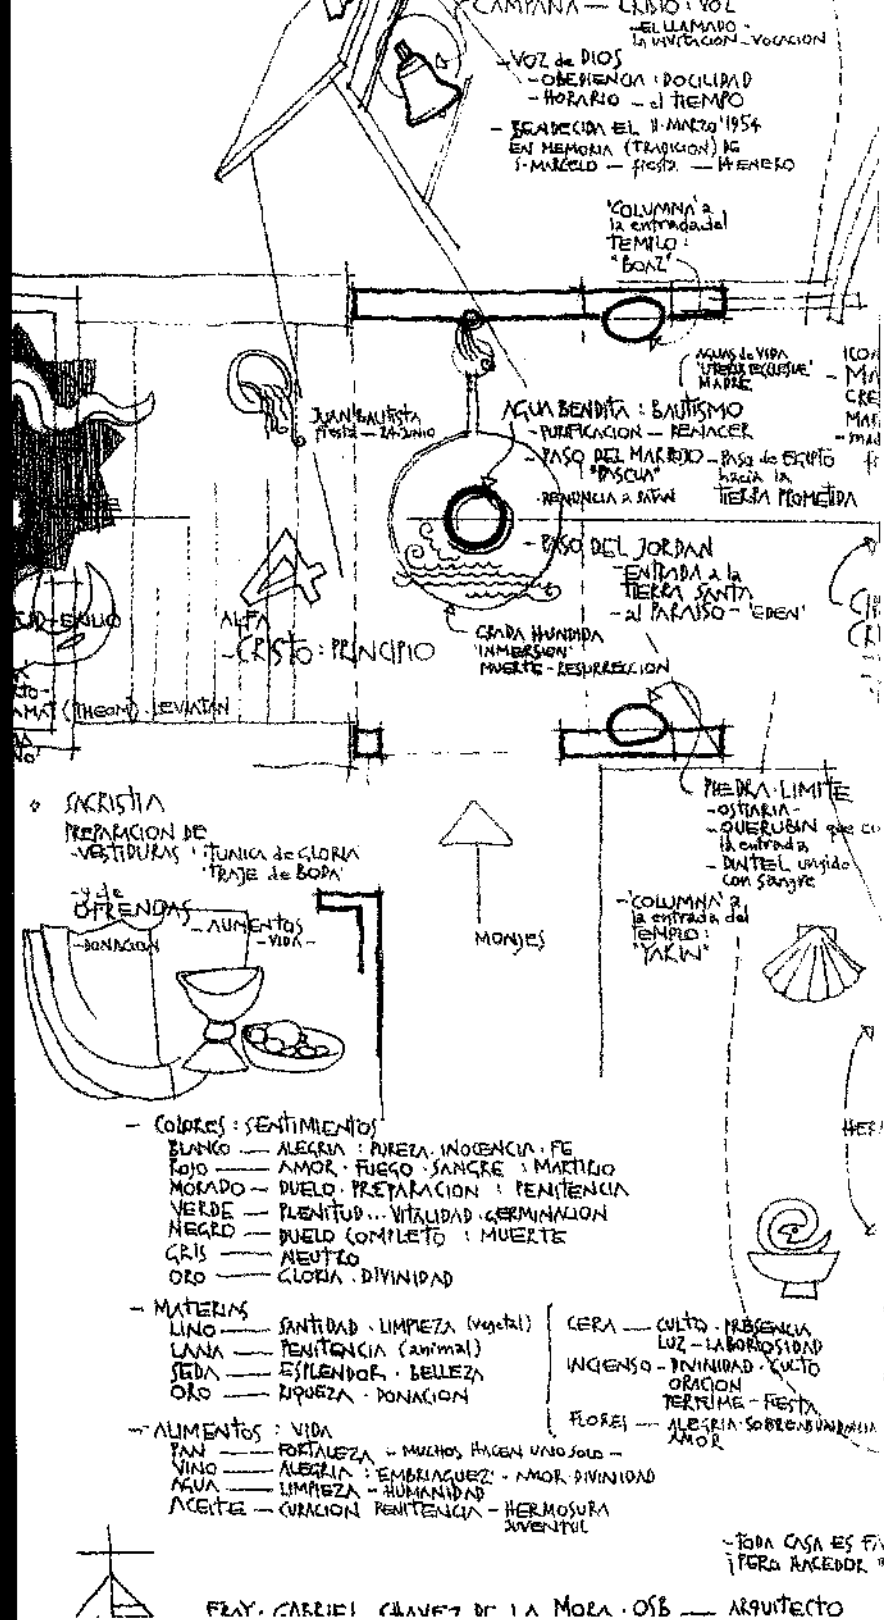 CAMPANA — CRISIO : VOZ
- EL LLAMADO -
la INVITACION - VOCACION
- VOZ de DIOS
- OBEDIENCIA : DOCILIDAD
- HORARIO - el TIEMPO
- BENDECIDA EL 11·MARZO'1954
EN MEMORIA (TRADICION) DE
S·MARCELO — fiesta — 14 ENERO
'COLUMNA' a
la entrada del
TEMPLO :
"BOAZ"
AGUAS de VIDA
MADRE
JUAN BAUTISTA
fiesta — 24·JUNIO
AGUA BENDITA : BAUTISMO
- PURIFICACION — RENACER
- PASO DEL MAR ROJO - PASO de EGIPTO
"PASCUA"
hacia la
TIERRA PROMETIDA
- RENUNCIA a SATAN
- PASO DEL JORDAN
- ENTRADA a la
TIERRA SANTA
- al PARAISO - 'EDEN'
GRADA HUNDIDA
'INMERSION'
MUERTE - RESURRECCION
EXILIO
ALFA
- CRISTO : PRINCIPIO
(THEOM) · LEVIATAN
PIEDRA·LIMITE
- OSTIARIA -
- QUERUBIN que
la entrada
- DINTEL ungido
con sangre
SACRISTIA
PREPARACION DE
- VESTIDURAS : 'TUNICA de GLORIA'
'TRAJE de BODA'
- y de
OFRENDAS
- ALIMENTOS
- VIDA -
- DONACION
MONJES
- 'COLUMNA' a
la entrada del
TEMPLO :
"YAKIN"
- COLORES : SENTIMIENTOS
BLANCO — ALEGRIA : PUREZA·INOCENCIA·FE
ROJO — AMOR·FUEGO·SANGRE : MARTIRIO
MORADO — DUELO·PREPARACION : PENITENCIA
VERDE — PLENITUD... VITALIDAD·GERMINACION
NEGRO — DUELO COMPLETO : MUERTE
GRIS — NEUTRO
ORO — GLORIA·DIVINIDAD
- MATERIAS
LINO — SANTIDAD·LIMPIEZA (vegetal)
LANA — PENITENCIA (animal)
SEDA — ESPLENDOR·BELLEZA
ORO — RIQUEZA·DONACION
CERA — CULTO·PRESENCIA
LUZ - LABORIOSIDAD
INCIENSO - DIVINIDAD·CULTO
ORACION
PERFUME - FIESTA
FLORES — ALEGRIA·SOBREABUNDANCIA
AMOR
- ALIMENTOS : VIDA
PAN — FORTALEZA - MUCHOS HACEN UNO SOLO -
VINO — ALEGRIA : 'EMBRIAGUEZ' - AMOR·DIVINIDAD
AGUA — LIMPIEZA - HUMANIDAD
ACEITE — CURACION PENITENCIA - HERMOSURA
JUVENTUD
- TODA CASA ES
¡PERO HACEDOR
FRAY·GABRIEL CHAVEZ DE LA MORA·OSB — ARQUITECTO